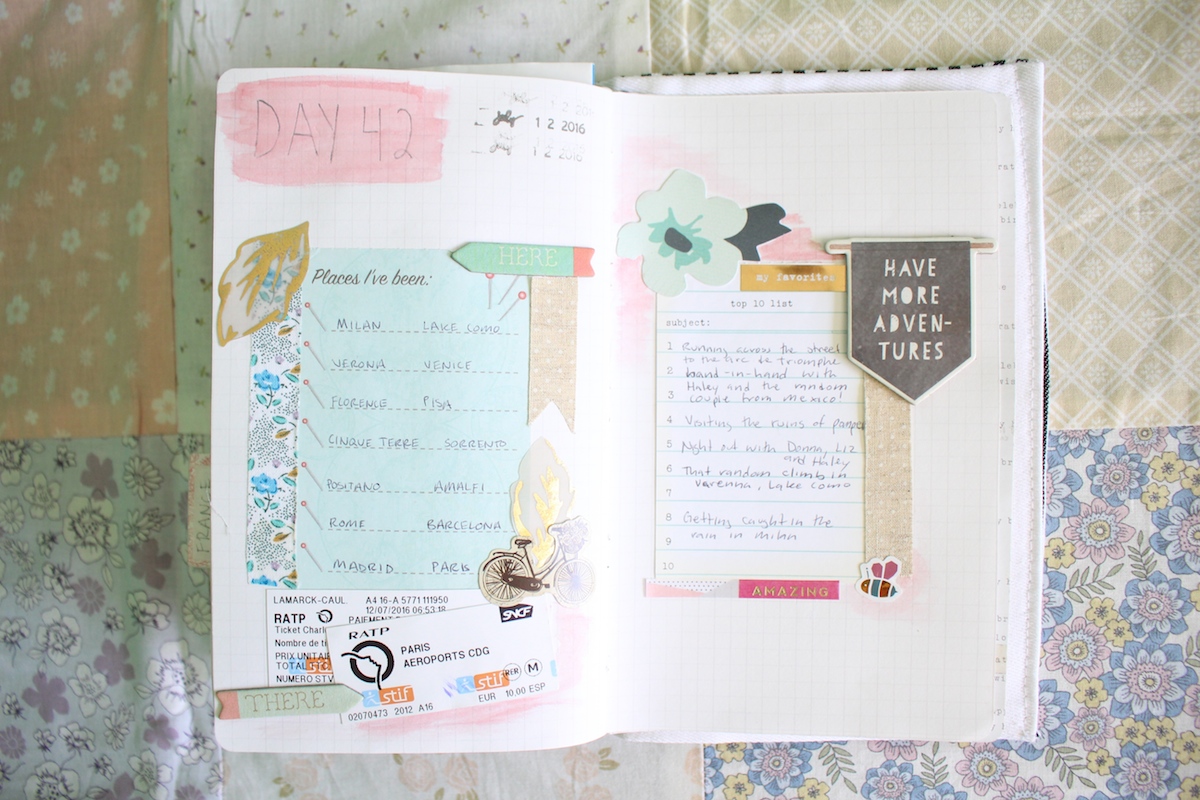 DAY 42
12 2016
12 2016
12 2016
HERE
Places I've been:
MILAN LAKE COMO
VERONA VENICE
FLORENCE PISA
CINQUE TERRE SORRENTO
POSITANO AMALFI
ROME BARCELONA
MADRID PARIS
FRANCE
LAMARCK-CAUL. A4 16-A 5771 111950
RATP 12/07/2016 06:53
Ticket
PAIEMENT
Nombre de
PRIX UNITAIR
TOTAL
NUMERO STV
SNCF
RATP
PARIS
AEROPORTS CDG
stif
stif
stif
RER M
EUR 10,00 ESP
02070473 2012 A16
THERE
my favorites
top 10 list
subject:
1 Running across the street
to the arc de triomphe
2 hand-in-hand with
Haley and the random
3 couple from mexico!
4 Visiting the ruins of
5 Night out with Donna, Liz
and Haley
6 That random climb in
Varenna, Lake Como
7
8 Getting caught in the
rain in milan
9
10
AMAZING
HAVE
MORE
ADVEN-
TURES